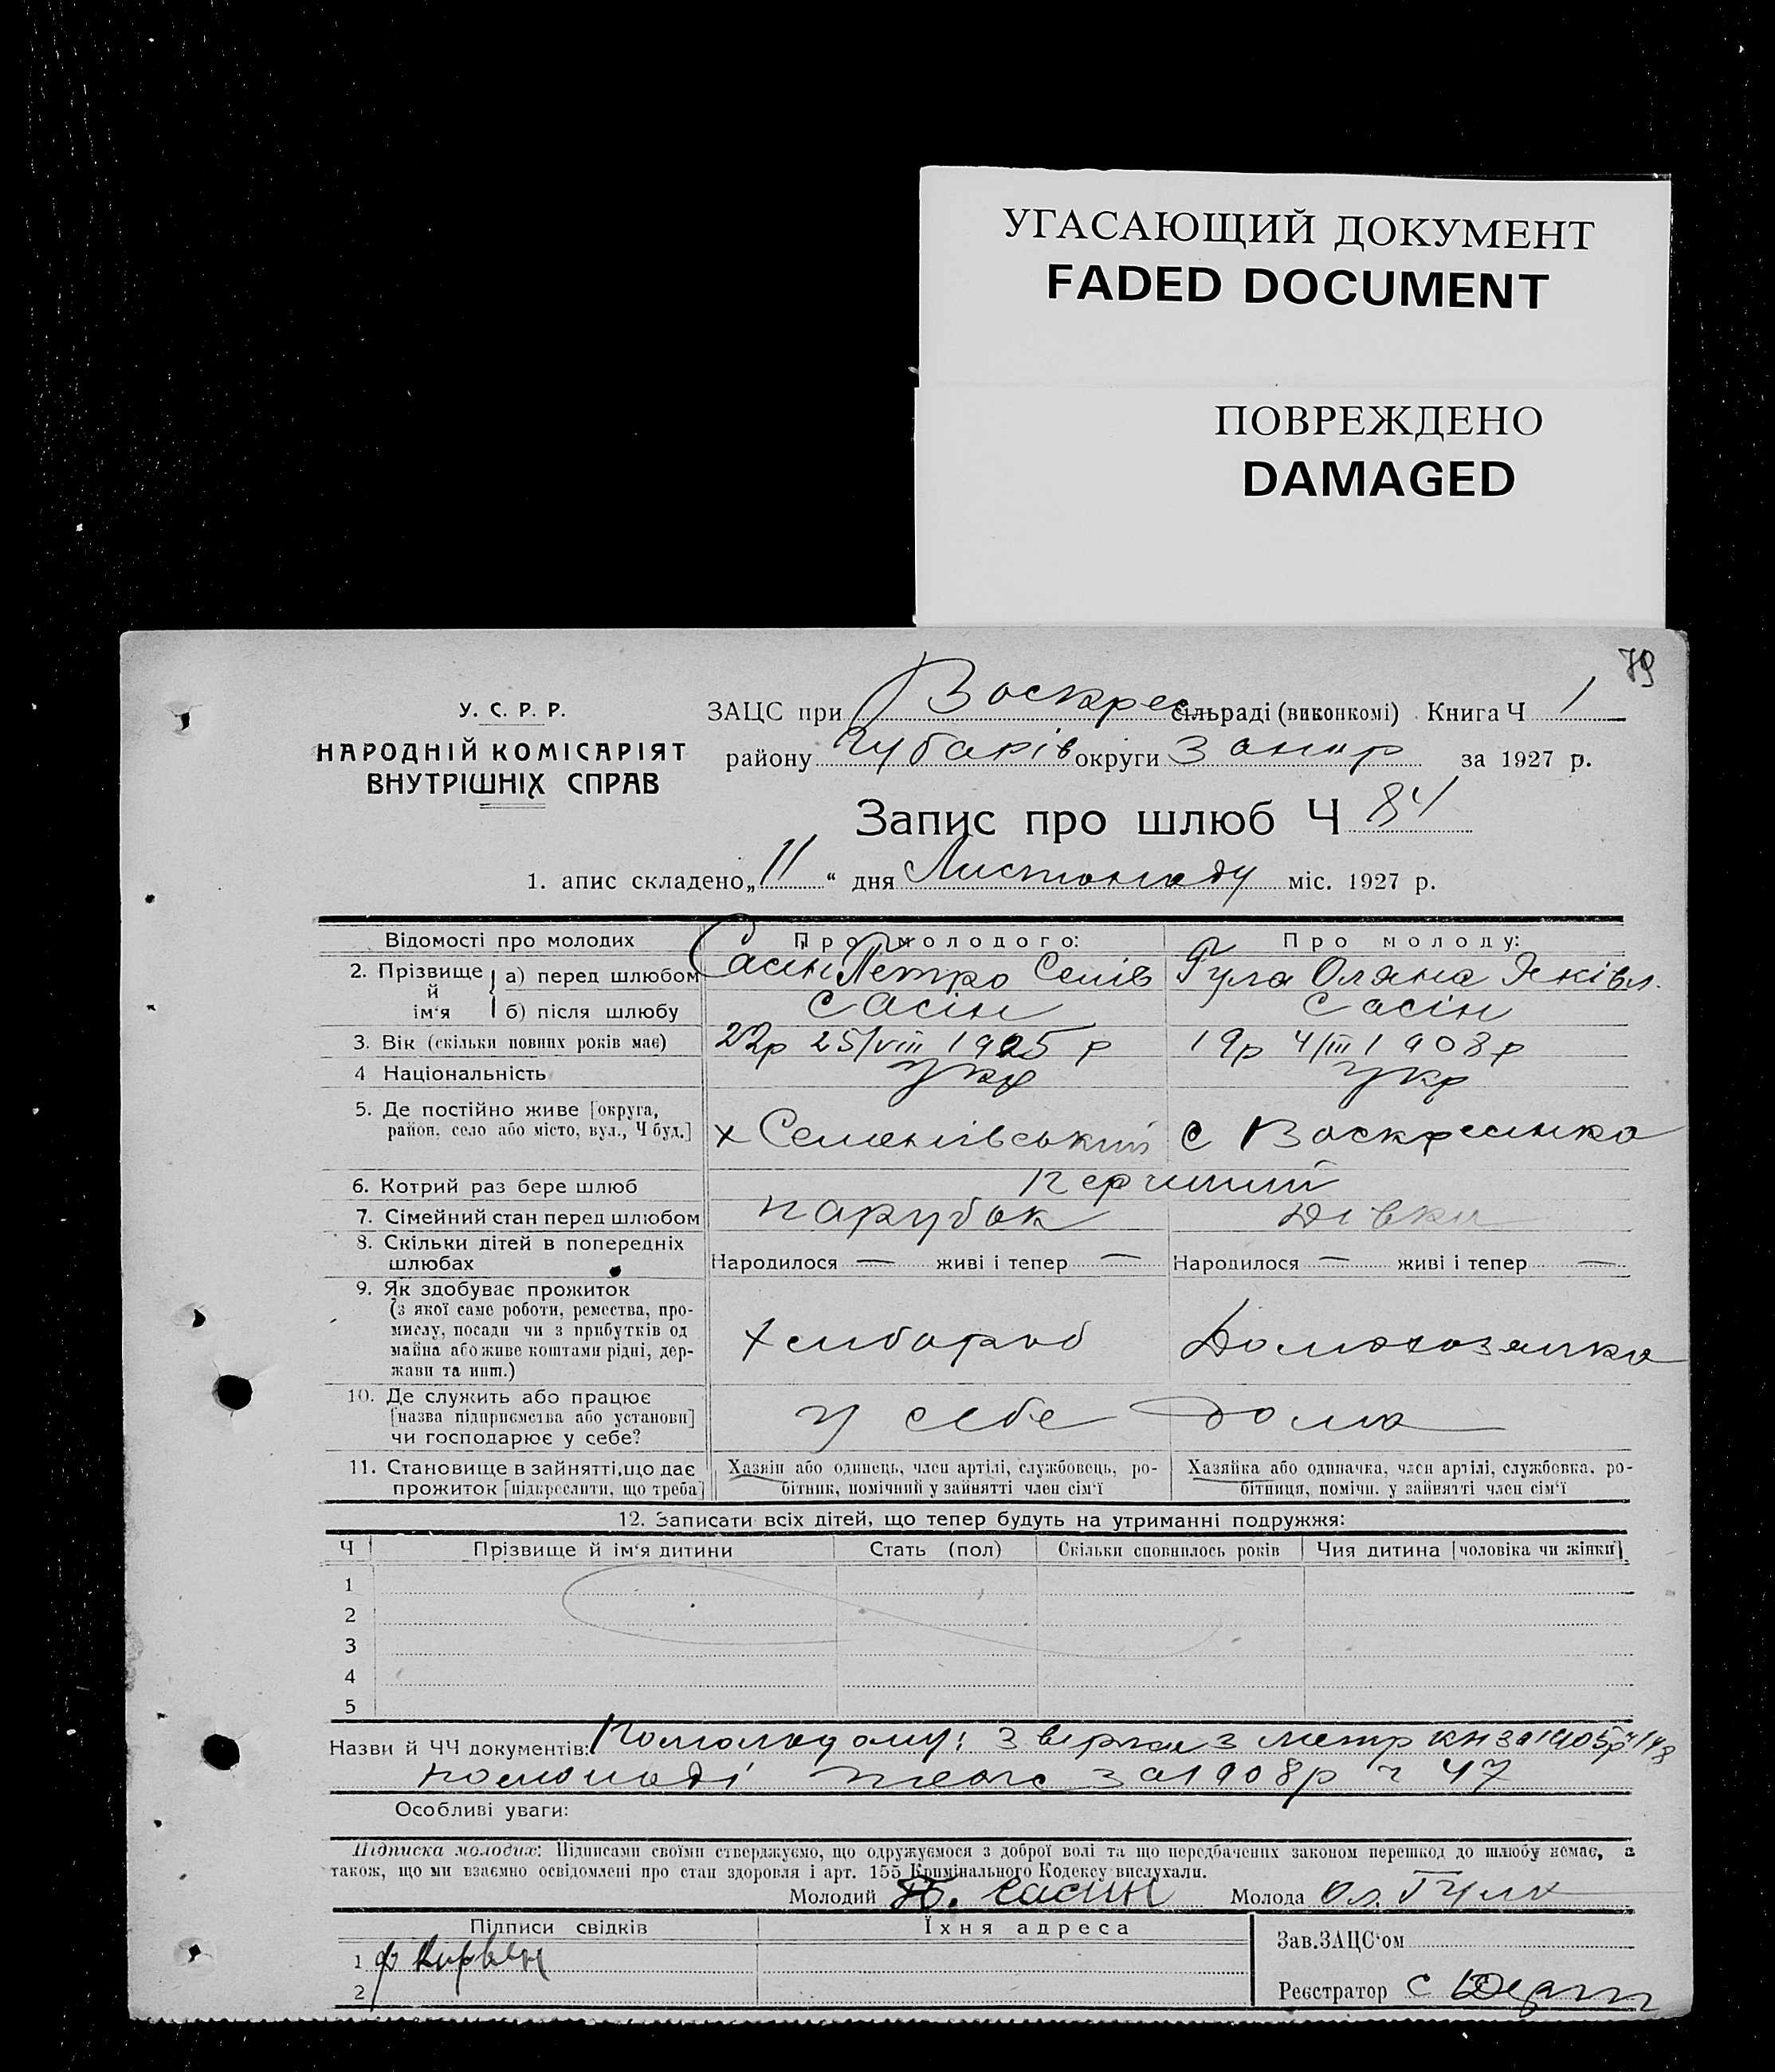 УГАСАЮЩИЙ ДОКУМЕНТ
FADED DOCUMENT
ПОВРЕЖДЕНО
DAMAGED
79
У. С. Р. Р.
НАРОДНІЙ КОМІСАРІЯТ
ВНУТРІШНІХ СПРАВ
ЗАЦС при Воскрес сільраді (виконкомі) Книга Ч 1
району Чубарів округи Запор за 1927 р.
Запис про шлюб Ч 84
1. апис складено „11“ дня Листопаду міс. 1927 р.
Відомості про молодих Про молодого: Про молоду:
2. Прізвище й ім'я а) перед шлюбом Сасін Петро Семів Гула Оляна Яківл.
б) після шлюбу Сасін Сасін
3. Вік (скільки повних років має) 22р 25/VIII 1905 р 19р 4/III 1908 р
4 Національність укр укр
5. Де постійно живе [округа,
район, село або місто, вул., Ч буд.] х Семенівський с Воскресенка
6. Котрий раз бере шлюб перший
7. Сімейний стан перед шлюбом парубок Дівка
8. Скільки дітей в попередніх
шлюбах Народилося — живі і тепер — Народилося — живі і тепер —
9. Як здобуває прожиток
(з якої саме роботи, ремества, про-
мислу, посади чи з прибутків од
майна або живе коштами рідні, дер-
жави та инш.) Хлібороб Домохозяйка
10. Де служить або працює
[назва підприємства або установи]
чи господарює у себе? у себе дома
11. Становище в зайнятті, що дає
прожиток [підкреслити, що треба]
Хазяїн або одинець, член артілі, службовець, ро-
бітник, помічний у зайнятті член сім'ї
Хазяйка або одиначка, член артілі, службовка, ро-
бітниця, помічн. у зайнятті член сім'ї
12. Записати всіх дітей, що тепер будуть на утриманні подружжя:
Ч Прізвище й ім'я дитини Стать (пол) Скільки сповнилось років Чия дитина [чоловіка чи жінки]
1
2
3
4
5
Назви й ЧЧ документів: По молодому: з метр кн за 1905р ч 148
по молоді за 1908р ч 47
Особливі уваги:
Підписка молодих: Підписами своїми стверджуємо, що одружуємося з доброї волі та що передбачених законом перешкод до шлюбу немає, а
також, що ми взаємно освідомлені про стан здоровля і арт. 155 Кримінального Кодексу вислухали.
Молодий П. Сасин Молода Ол. Гула
Підписи свідків Їхня адреса
Зав. ЗАЦС'ом
1
2
Реєстратор С